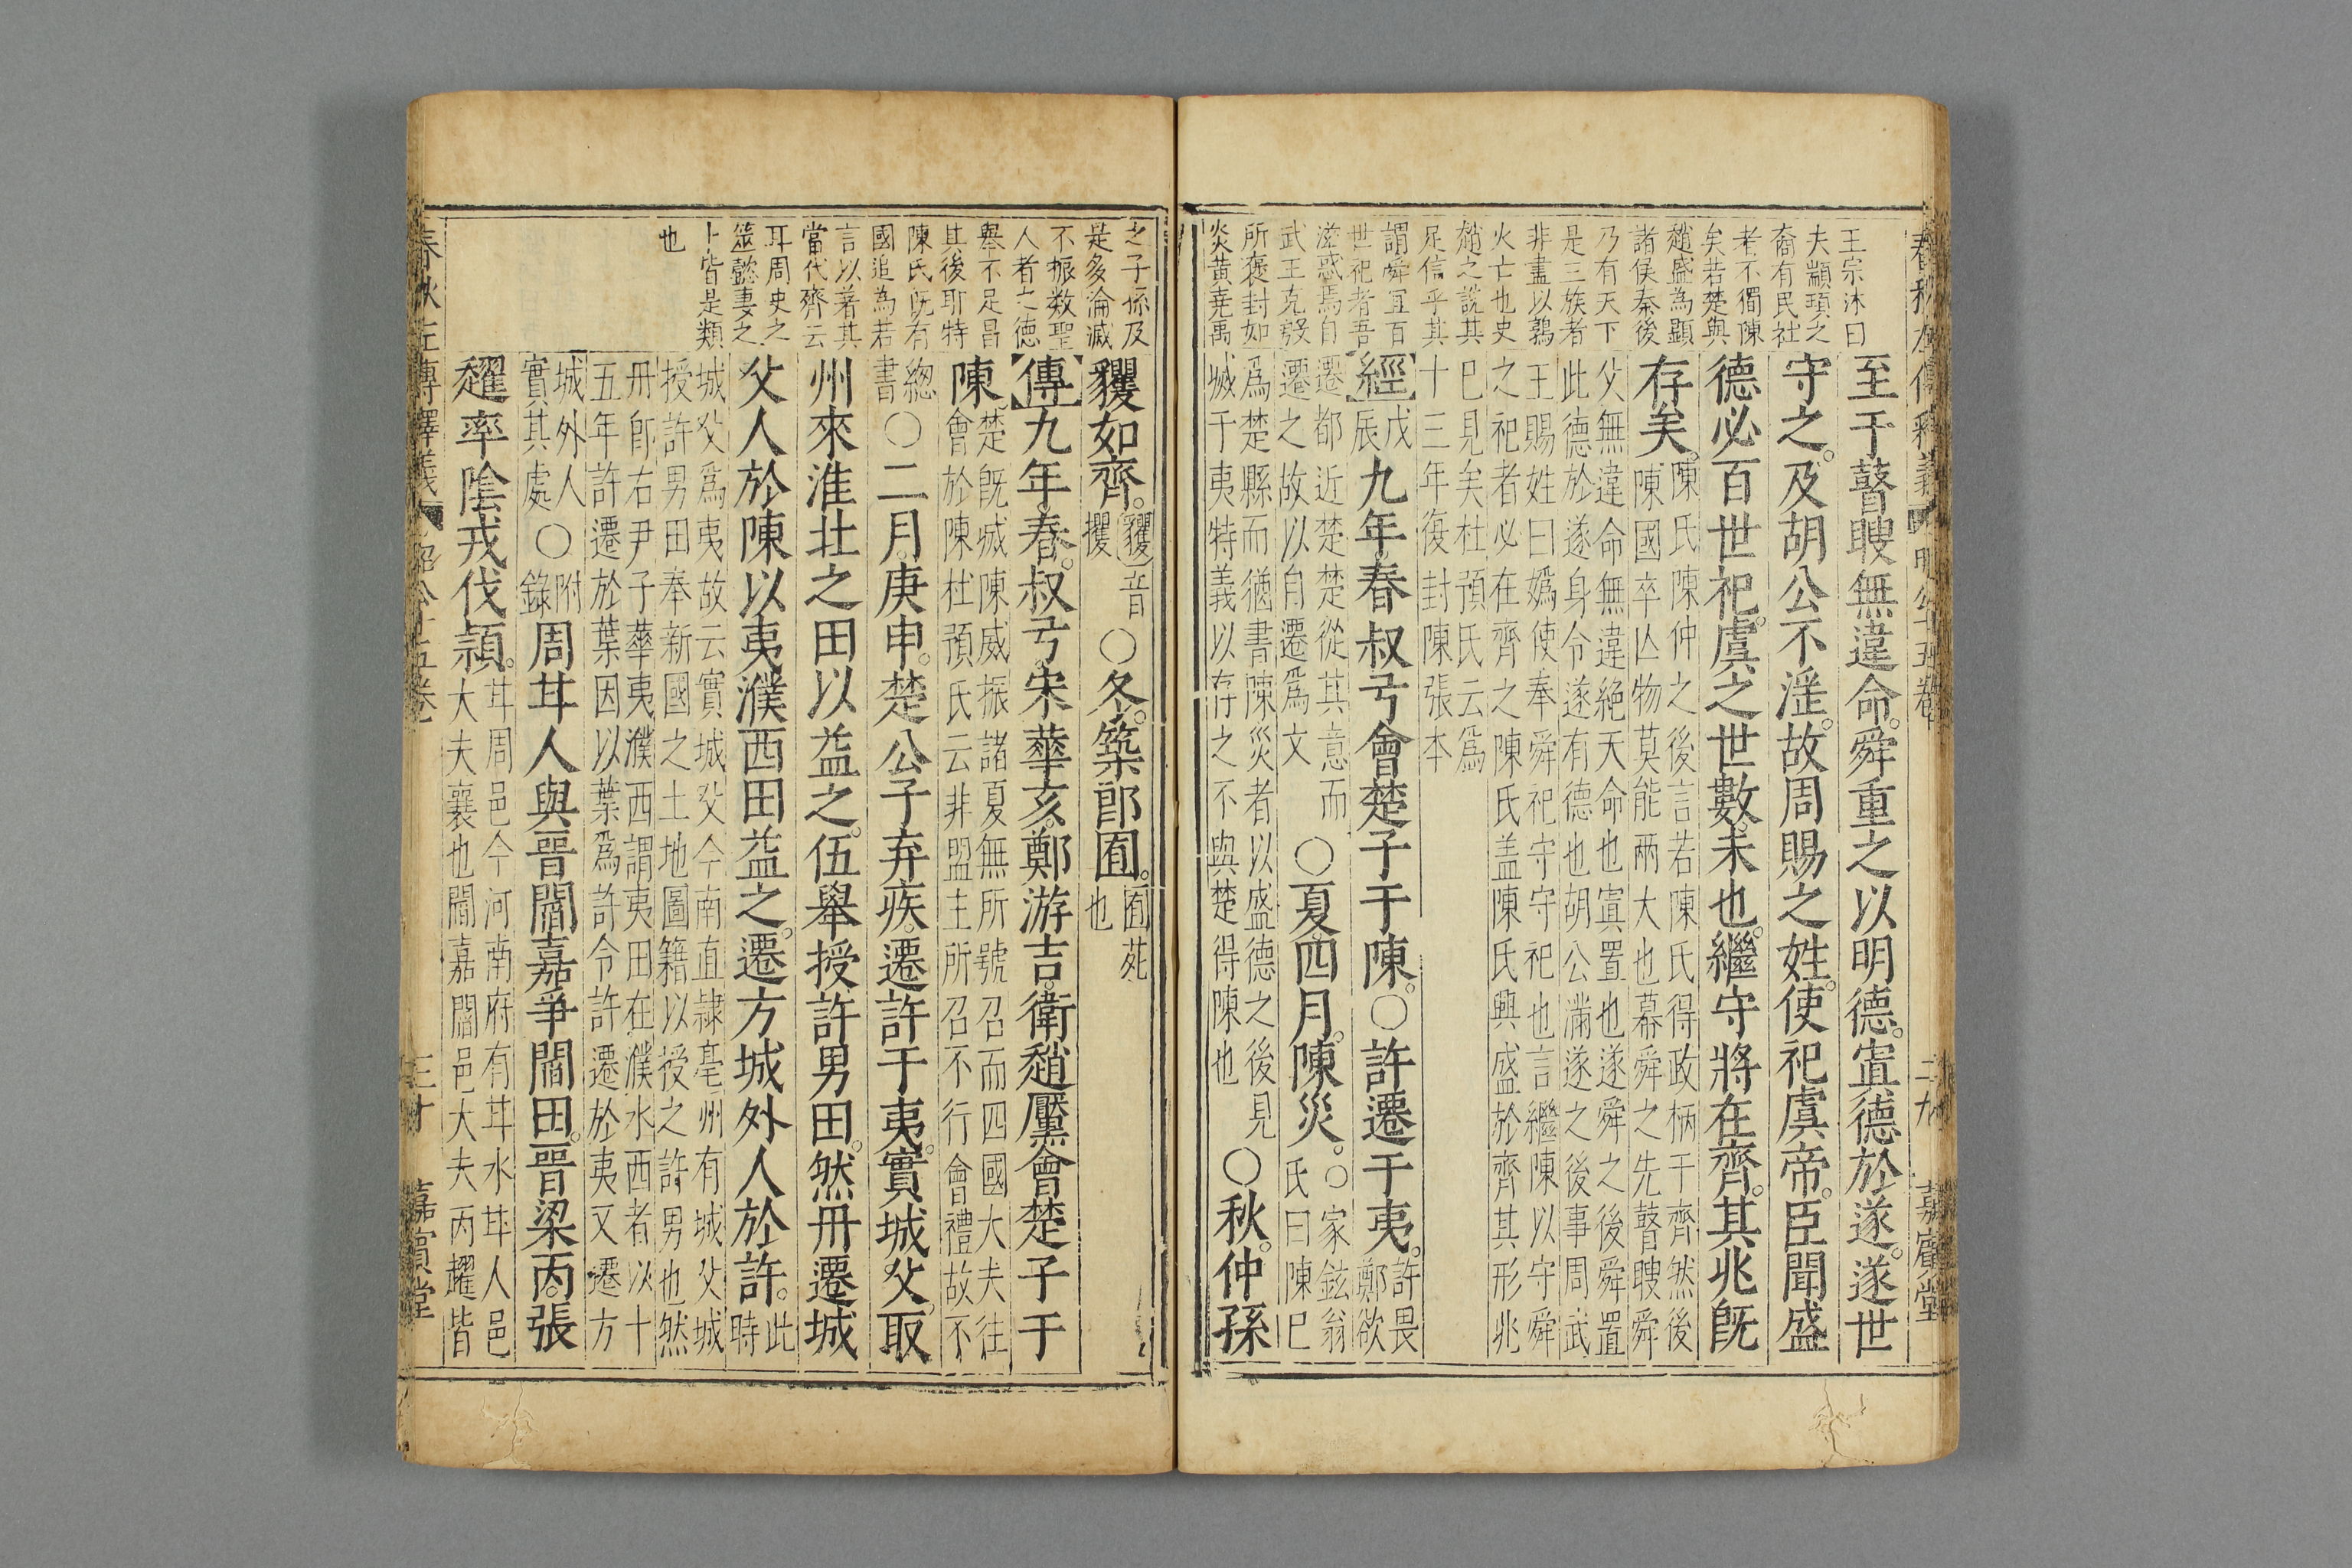 王宗沐曰
夫顓頊之
裔有民社
者不獨陳
矣若楚與
趙盛為顯
諸侯秦後
乃有天下
是三族者
非盡以鶉
火亡也史
趙之說其
足信乎其
謂舜宜百
世祀者吾
滋惑焉自
武王克殷
所褒封如
炎黄堯禹
至于瞽瞍無違命舜重之以明德寘德於遂遂世
守之及胡公不淫故周賜之姓使祀虞帝臣聞盛
德必百世祀虞之世數未也繼守將在齊其兆旣
存矣
陳氏陳仲之後言若陳氏得政柄于齊然後
陳國卒亾物莫能兩大也幕舜之先瞽瞍舜
父無違命無違絕天命也寘置也遂舜之後舜置
此德於遂身令遂有德也胡公滿遂之後事周武
王賜姓曰嬀使奉舜祀守守祀也言繼陳以守舜
之祀者必在齊之陳氏盖陳氏興盛於齊其形兆
已見矣杜預氏云爲
十三年復封陳張本
經
戊
辰
九年春叔弓會楚子于陳○許遷于夷
許畏
鄭欲
遷都近楚楚從其意而
遷之故以自遷爲文
○夏四月陳災
○家鉉翁
氏曰陳巳
爲楚縣而猶書陳災者以盛德之後見
城于夷特義以存之不與楚得陳也
○秋仲孫
之子孫及
是多淪滅
不振数聖
人者之德
舉不足昌
其後耶特
陳氏旣有
國追為若
言以著其
當代齊云
耳周史之
筮懿妻之
卜皆是類
也
貜如齊
貜音
攫
○冬築郎囿
囿苑
也
傳九年春叔弓宋華亥鄭游吉衛趙黶會楚子于
陳
楚旣滅陳威振諸夏無所號召而四國大夫往
會於陳杜預氏云非盟主所召不行會禮故不
緫
書
○二月庚申楚公子弃疾遷許于夷實城父取
州來淮北之田以益之伍舉授許男田然丹遷城
父人於陳以夷濮西田益之遷方城外人於許
此
時
城父爲夷故云實城父今南直隷亳州有城父城
授許男田奉新國之土地圖籍以授之許男也然
丹卽右尹子華夷濮西謂夷田在濮水西者以十
五年許遷於葉因以葉爲許令許遷於夷又遷方
城外人
實其處
○
附
錄
周甘人與晉閻嘉爭閻田晉梁丙張
趯率陰戎伐潁
甘周邑今河南府有甘水甘人邑
大夫襄也閻嘉閻邑大夫丙趯皆
三十
嘉賓堂